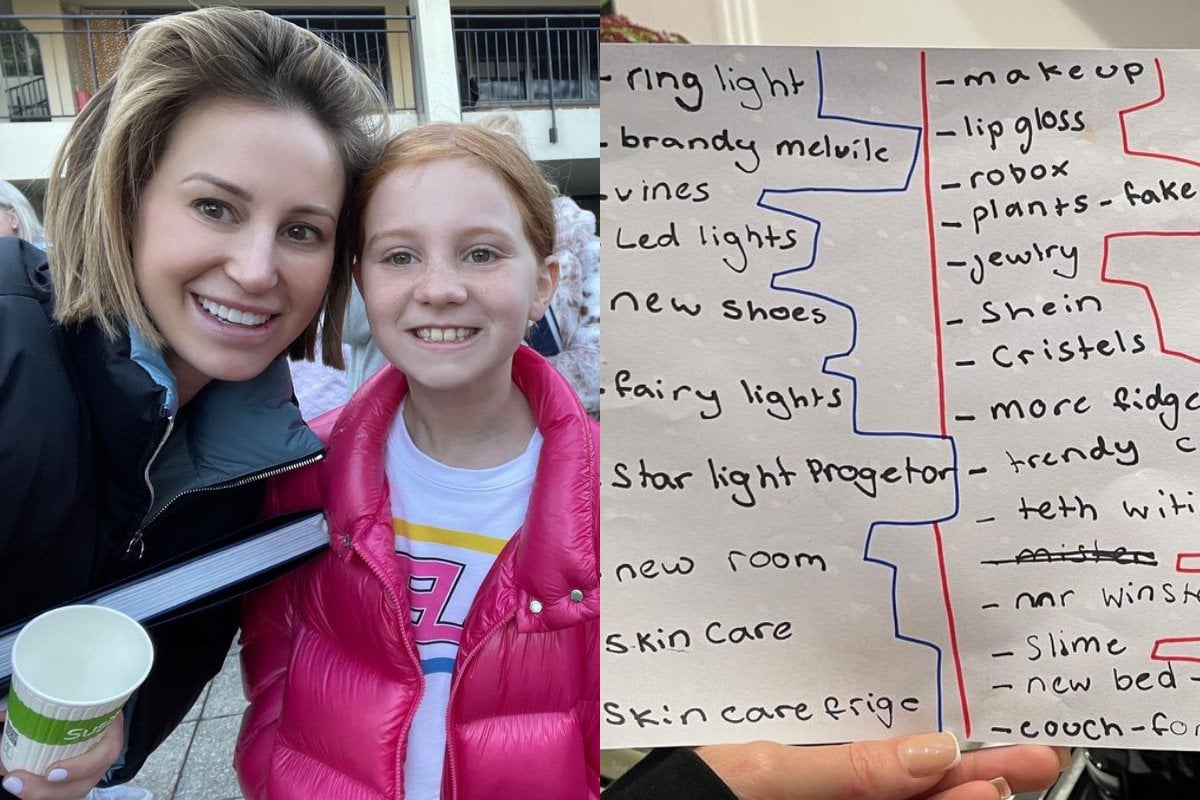 - ring light
- brandy melvile
- vines
Led lights
new shoes
- fairy lights
Star light Progetor
new room
skin care
skin care frige
- makeup
- lip gloss
- robox
- plants - fake
- jewlry
- Shein
- Cristels
- more
- trendy
- teth
- mr
- Slime
- new bed -
- couch -